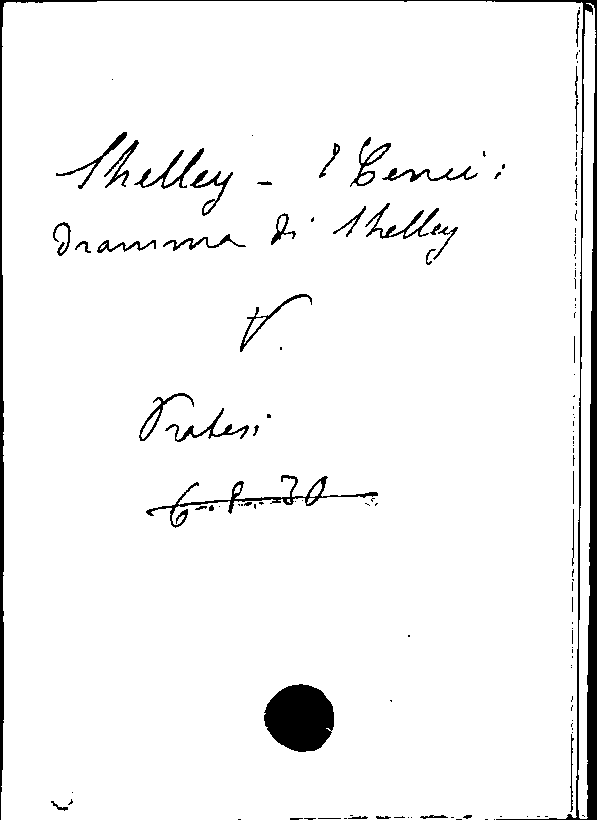 Shelley - I Cenci:
Dramma di Shelley
V.
Pratesi
6. P. 30